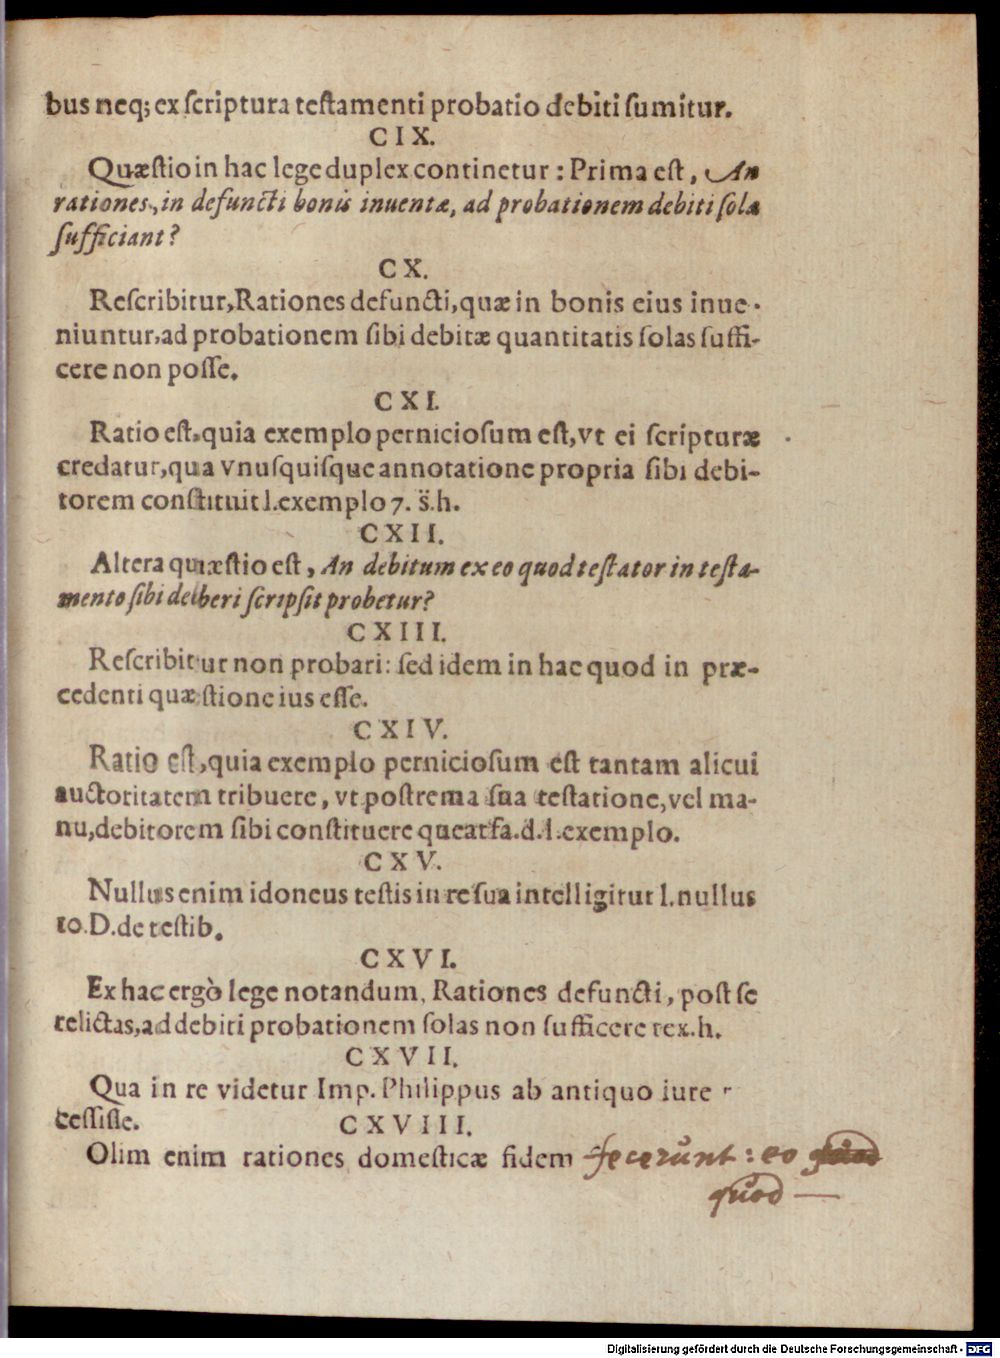 bus neq; ex scriptura testamenti probatio debiti sumitur.
CIX.
Quæstio in hac lege duplex continetur: Prima est, An
rationes, in defuncti bonis inuentæ, ad probationem debiti solæ
sufficiant?
CX.
Rescribitur, Rationes defuncti, quæ in bonis eius inue-
niuntur, ad probationem sibi debitæ quantitatis solas suffi-
cere non posse.
CXI.
Ratio est, quia exemplo perniciosum est, vt ei scripturæ
credatur, qua vnusquisque annotatione propria sibi debi-
torem constituit l. exemplo 7. s̈. h.
CXII.
Altera quæstio est, An debitum ex eo quod testator in testa-
mento sibi deberi scripsit probetur?
CXIII.
Rescribitur non probari: sed idem in hac quod in præ-
cedenti quæstione ius esse.
CXIV.
Ratio est, quia exemplo perniciosum est tantam alicui
auctoritatem tribuere, vt postrema sua testatione, vel ma-
nu, debitorem sibi constituere queat fa. d. l. exemplo.
CXV.
Nullus enim idoneus testis in re sua intelligitur l. nullus
10. D. de testib.
CXVI.
Ex hac ergò lege notandum, Rationes defuncti, post se
relictas, ad debiti probationem solas non sufficere tex. h.
CXVII.
Qua in re videtur Imp. Philippus ab antiquo iure
cessisse.
CXVIII.
Olim enim rationes domesticæ fidem fecerunt: eo
quod —
Digitalisierung gefördert durch die Deutsche Forschungsgemeinschaft - DFG